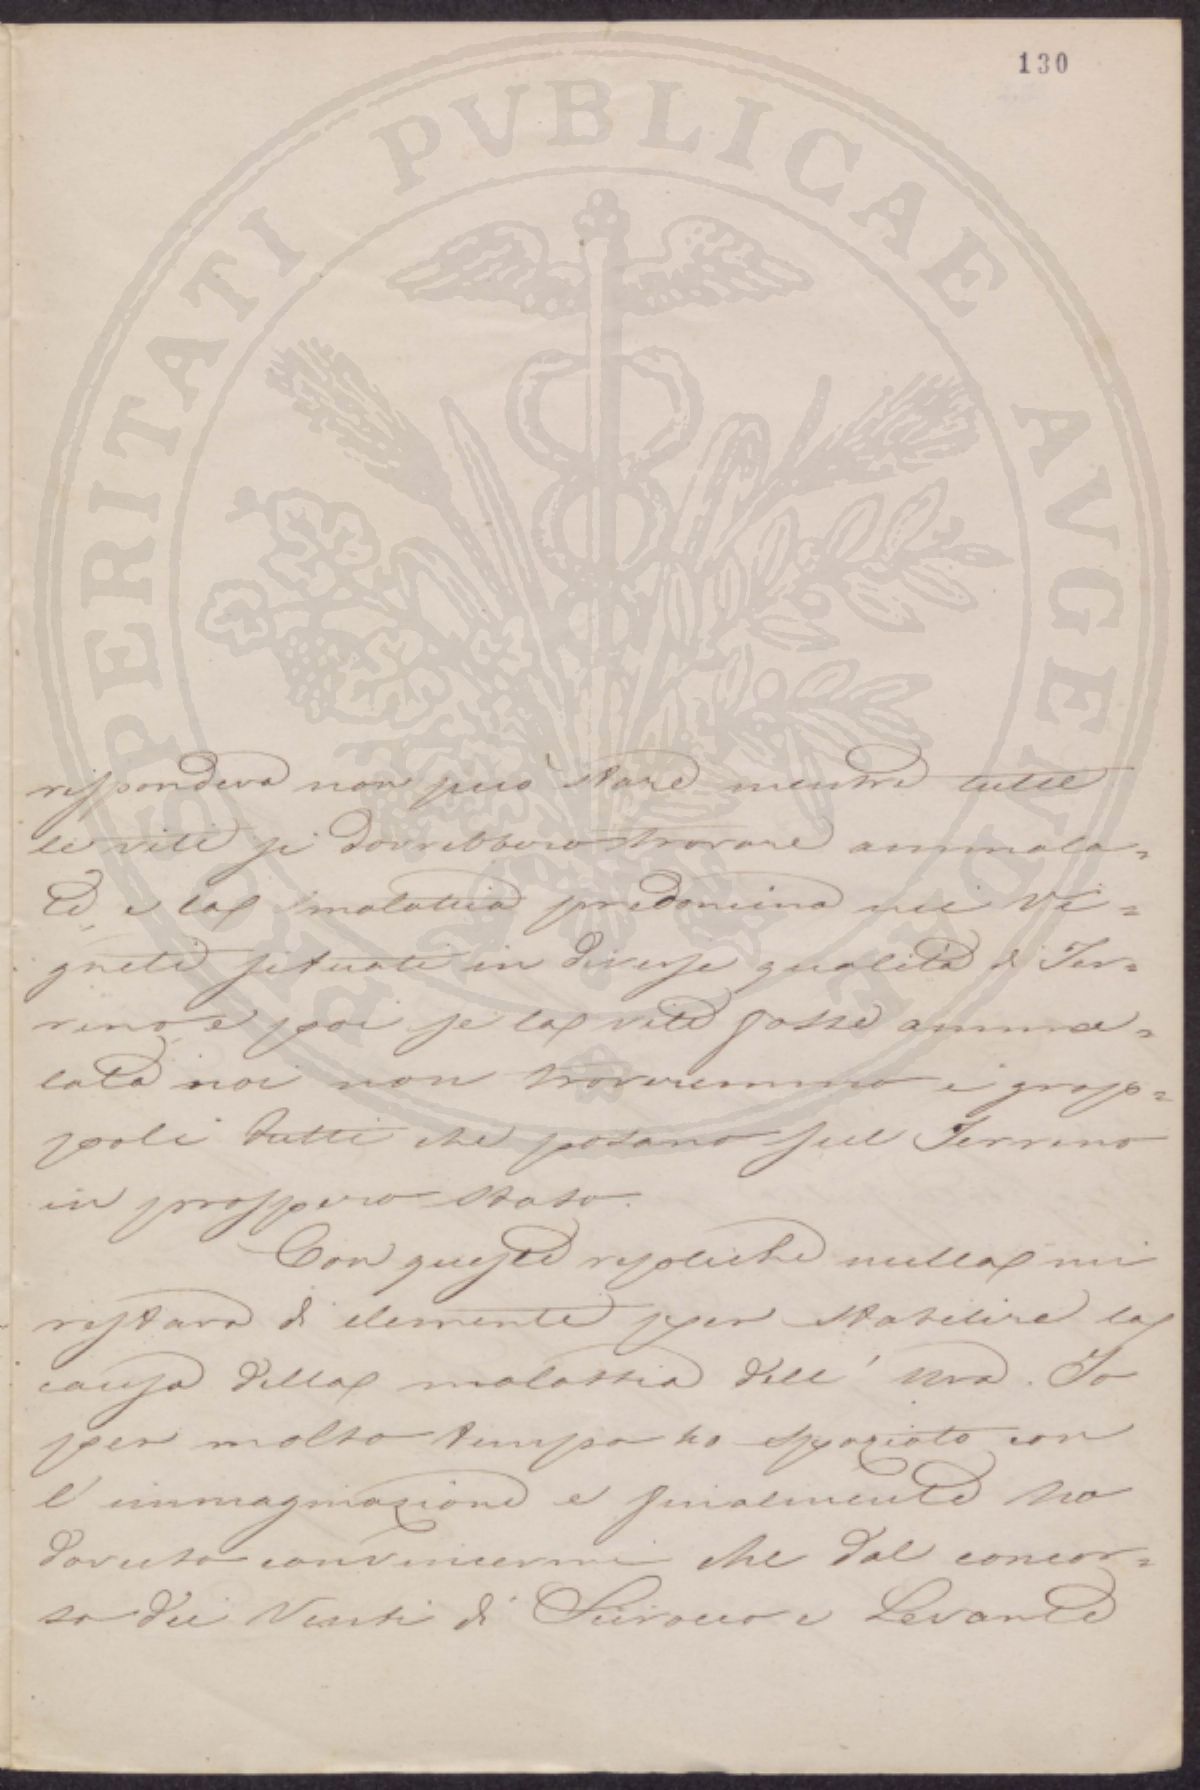 130
PROSPERITATI PVBLICAE AVGENDAE
rispondeva non può stare mentre tutte
le viti si dovrebbero trovare ammala=
te e la malattia predomina nei Vi=
gneti situati in diverse qualità di Ter=
reno e poi se la vite fosse amma=
lata noi non troveremmo i grap=
poli tutti che posano sul Terreno
in prospero stato.
Con queste repliche nulla mi
restava di elementi per stabilire la
causa della malattia dell' Uva. Io
per molto tempo ho spaziato con
l' immaginazione e finalmente ho
dovuto convincermi che dal concor=
so dei Venti di Scirocco e Levante